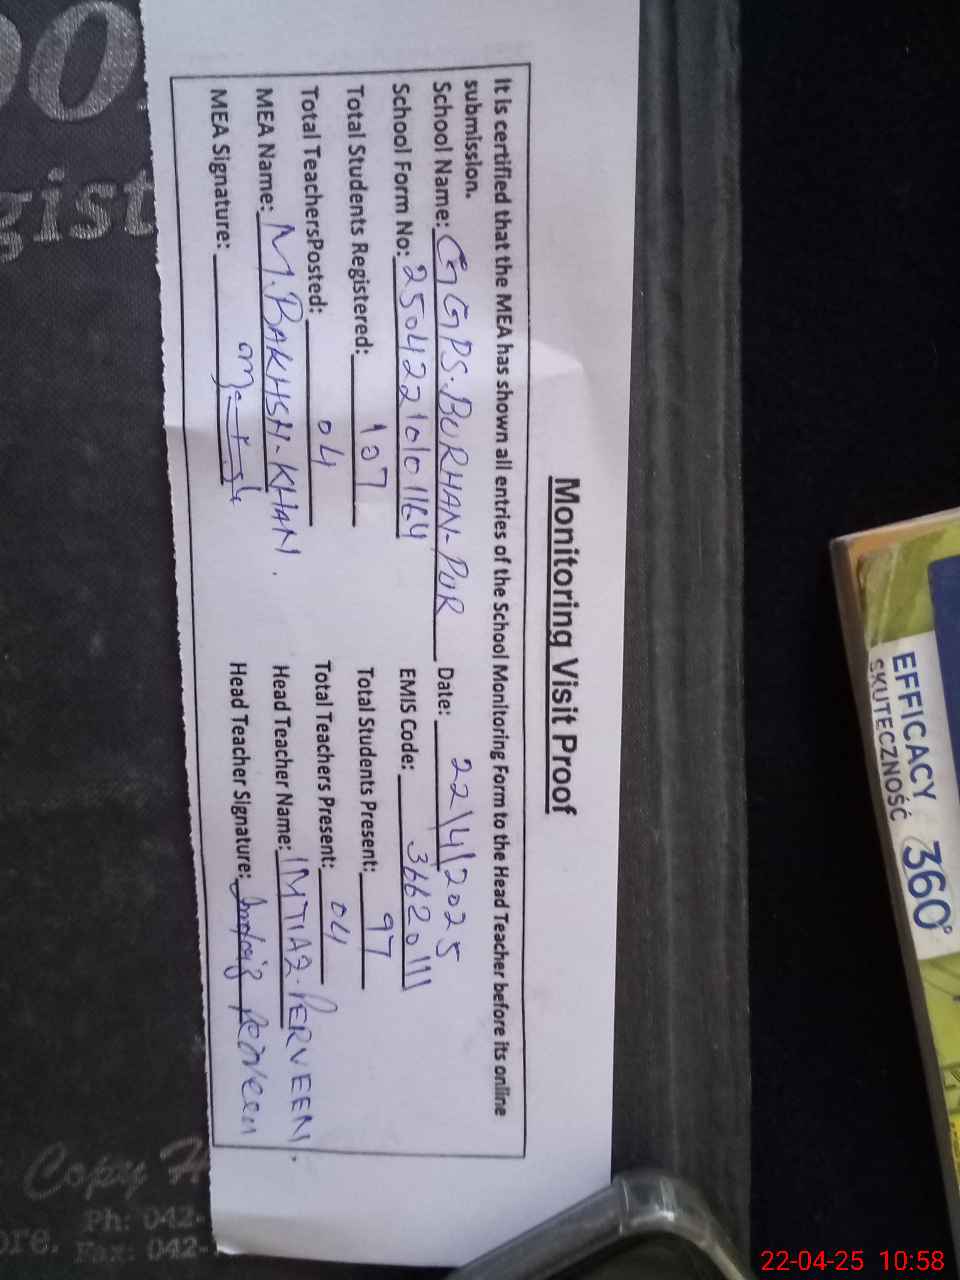 Monitoring Visit Proof
It is certified that the MEA has shown all entries of the School Monitoring Form to the Head Teacher before its online
submission.
School Name: GGPS. BURHAN-PUR Date: 22/4/2025
School Form No: 25042210101164 EMIS Code: 36620111
Total Students Registered: 107 Total Students Present: 97
Total TeachersPosted: 04 Total Teachers Present: 04
MEA Name: M. BAKHSH-KHAN. Head Teacher Name: IMTIAZ. PERVEEN.
MEA Signature: Head Teacher Signature: Imtiaz Perveen
EFFICACY 360°
SKUTECZNOŚĆ
gist
Copy H
Ph: 042-
ore. Fax: 042-
22-04-25 10:58